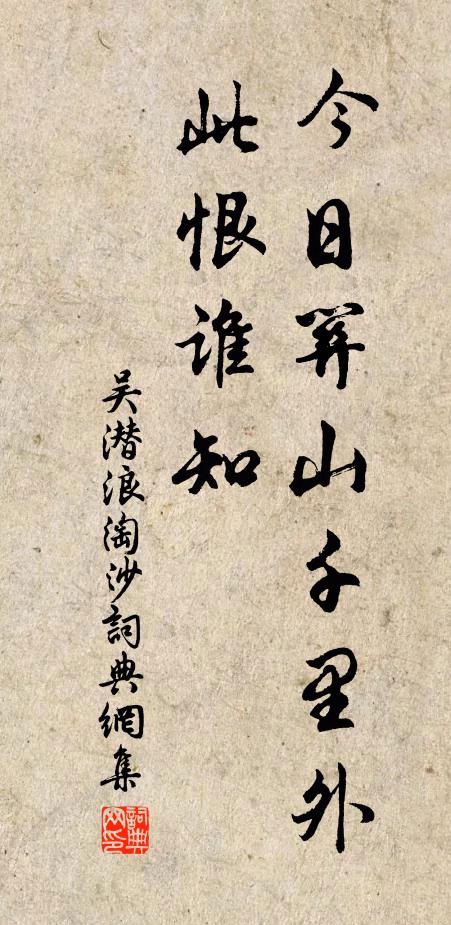 今日關山千里外
此恨誰知
吴潜浪淘沙詞典網集
詞典网印